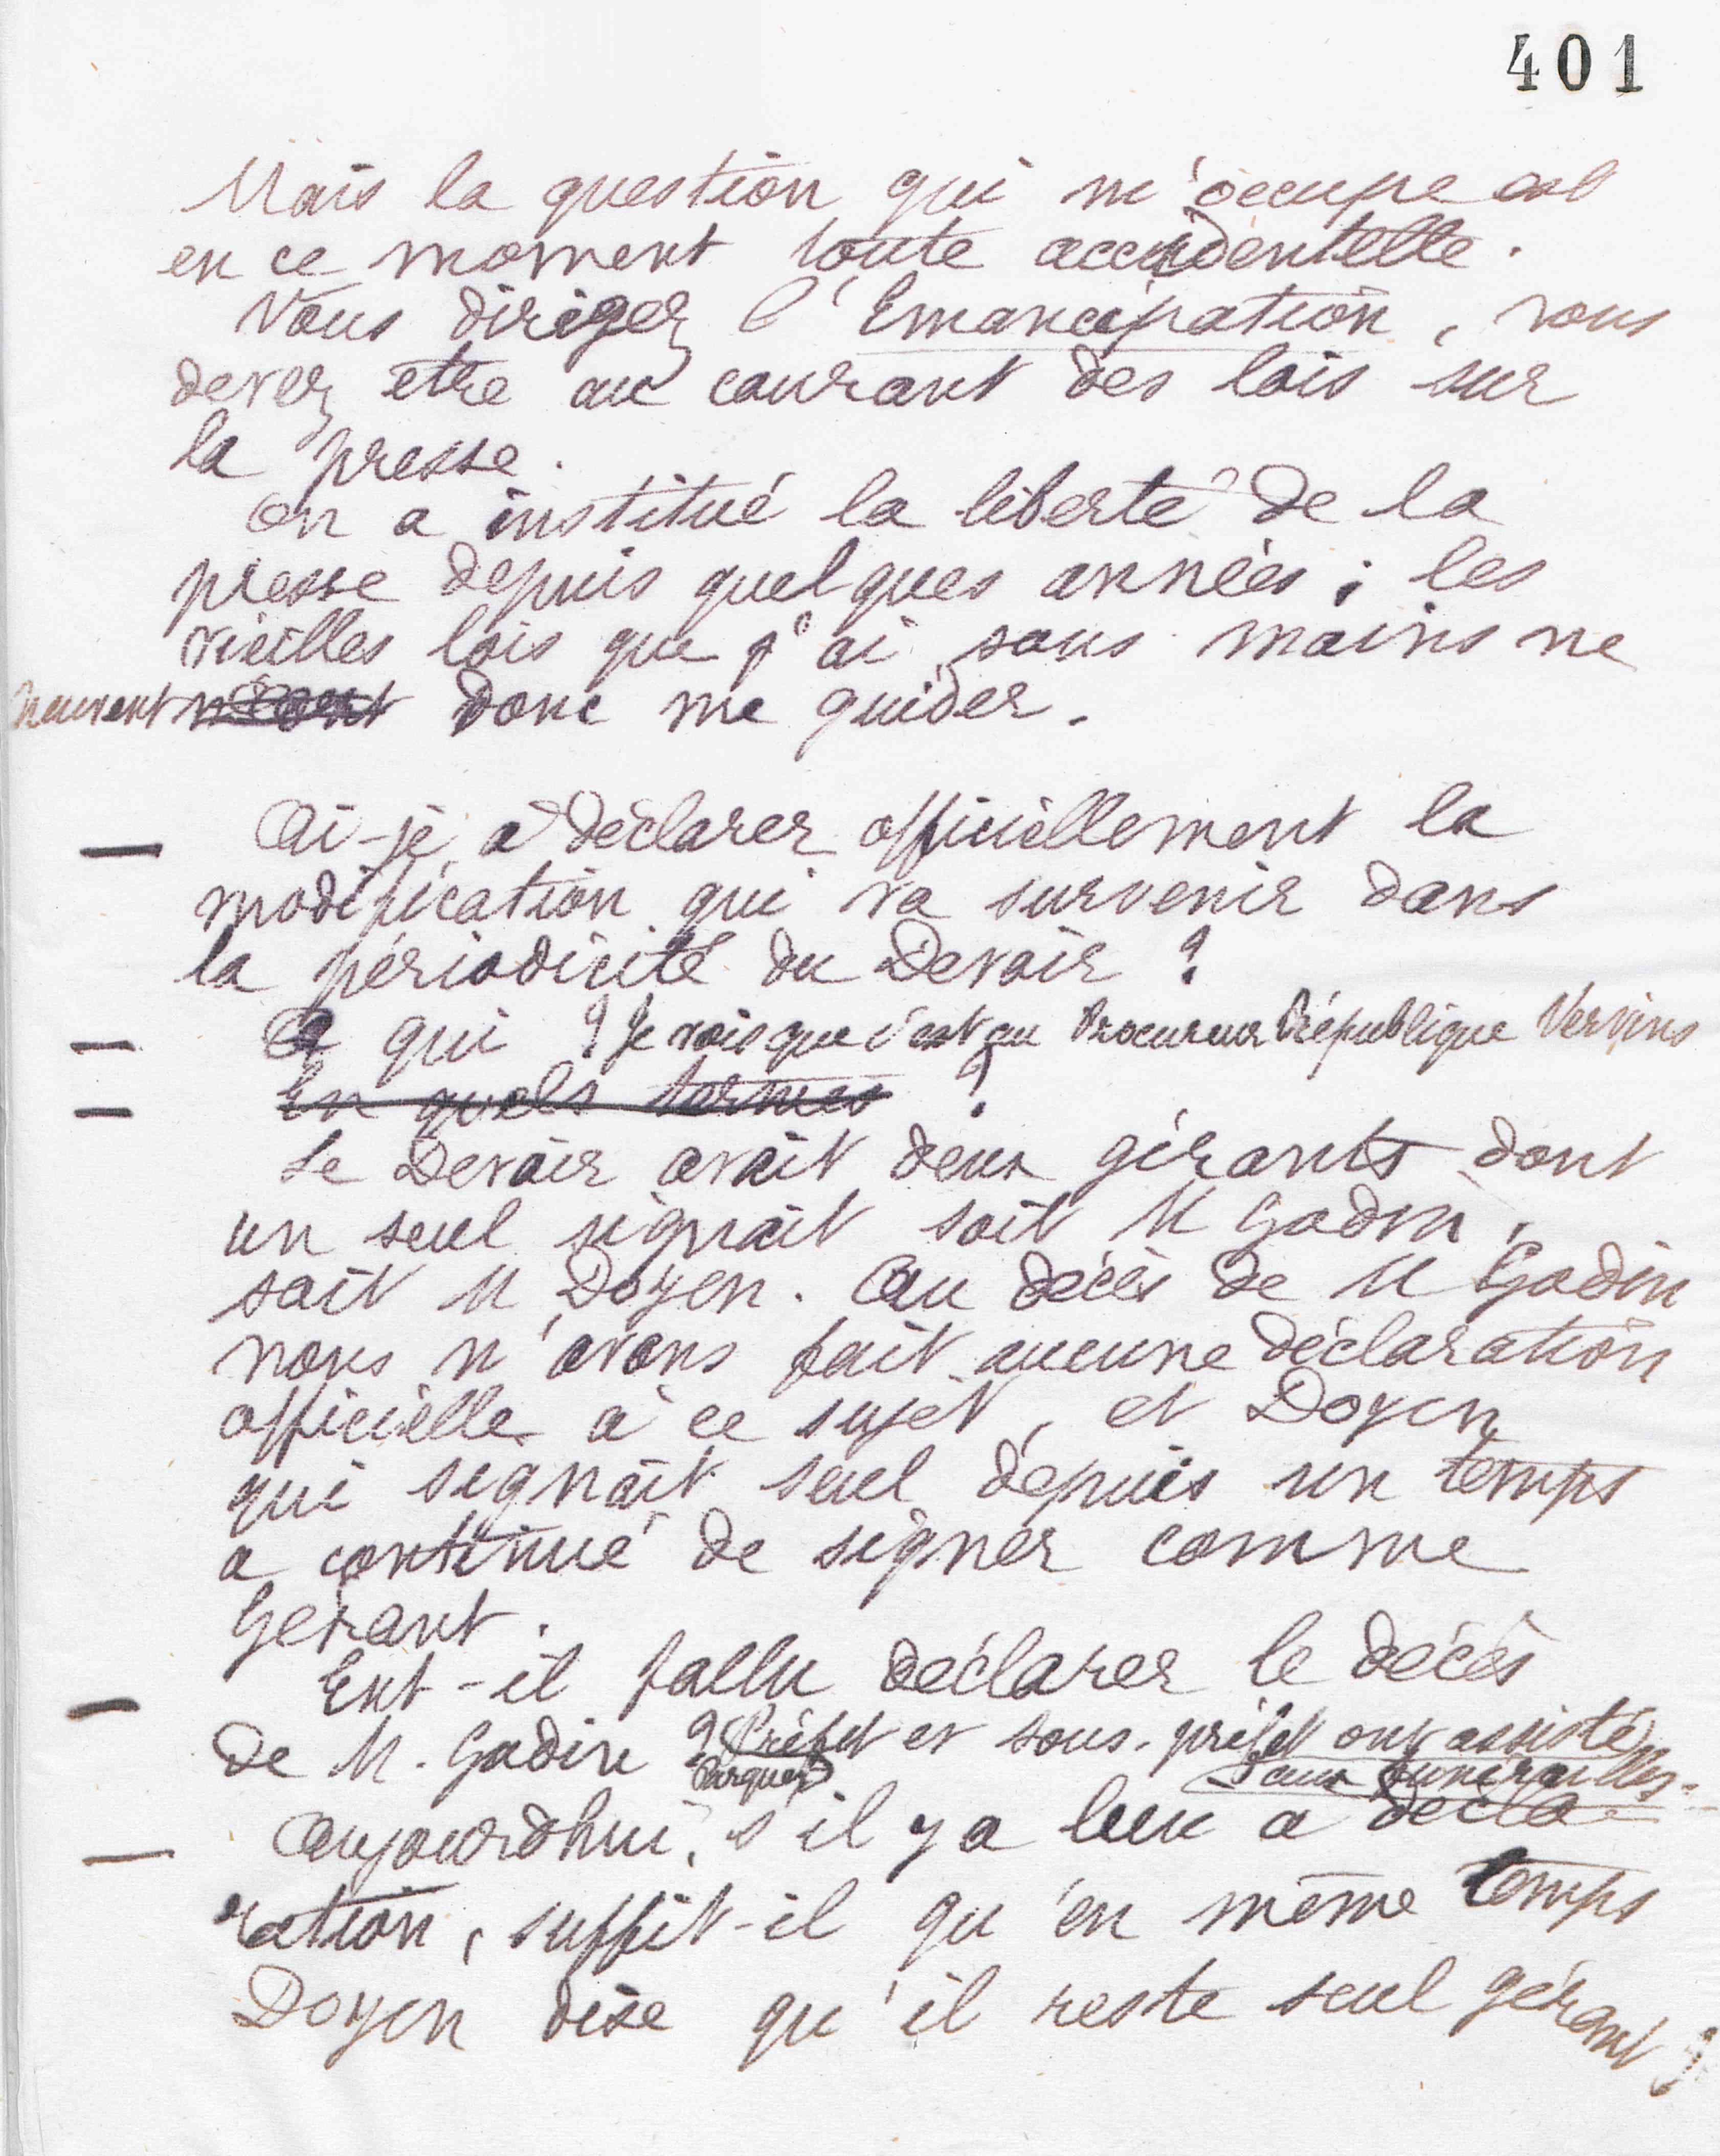 401
Mais la question qui m'occupe est
en ce moment toute accidentelle.
Vous dirigez l'Emancipation, vous
devez etre au courant des lois sur
la presse.
On a institué la liberté de la
presse depuis quelques années; les
vieilles lois que j'ai sous mains ne
peuvent donc me guider.
— Ai-je à déclarer officiellement la
modification qui va survenir dans
la périodicité du Devoir ?
— A qui ? Je vois que c'est au Procureur République Vervins
— En quels termes ?
Le Devoir avait deux gérants dont
un seul signait soit M Godin,
soit M Doyen. Au décès de M Godin
nous n'avons fait aucune déclaration
officielle à ce sujet, et Doyen
qui signait seul depuis un temps
a continué de signer comme
Gérant.
— Eut-il fallu déclarer le décès
de M. Godin ? Préfet et sous-préfet ont assisté
Parquet
aux funérailles.
— Aujourdhui, s'il y a lieu a décla-
ration, suffit-il qu'en même temps
Doyen dise qu'il reste seul gérant ?